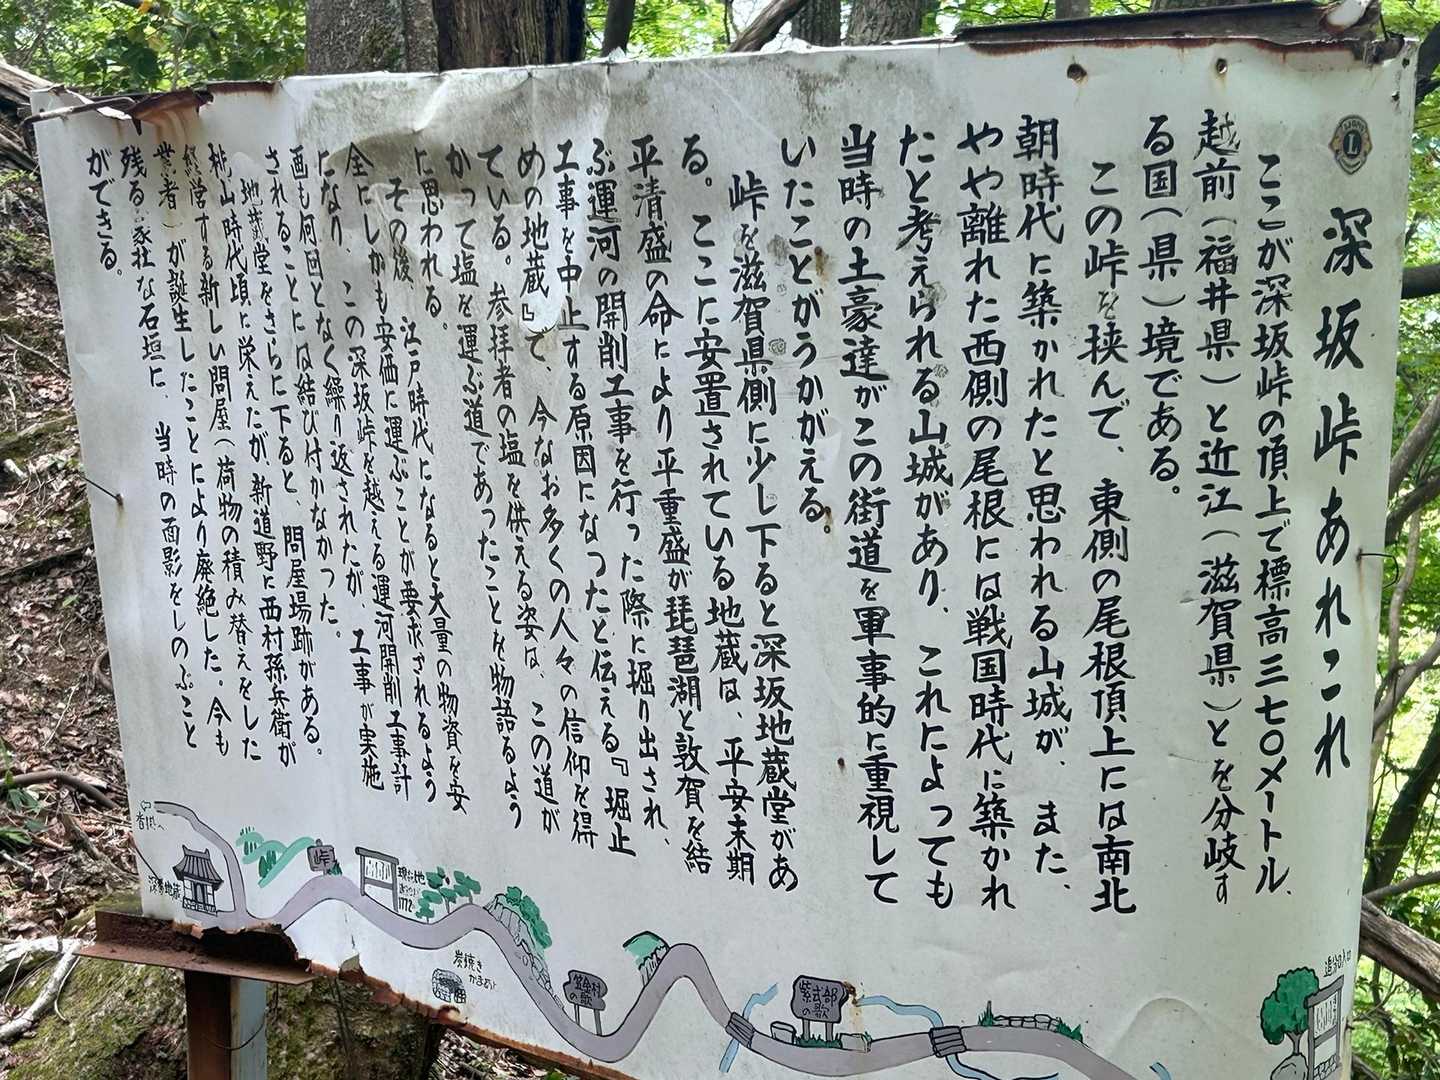 深坂峠あれこれ
ここが深坂峠の頂上で標高三七〇メートル、
越前（福井県）と近江（滋賀県）とを分岐す
る国（県）境である。
この峠を挟んで、東側の尾根頂上には南北
朝時代に築かれたと思われる山城が、また、
やや離れた西側の尾根には戦国時代に築かれ
たと考えられる山城があり、これによっても
当時の土豪達がこの街道を軍事的に重視して
いたことがうかがえる。
峠を滋賀県側に少し下ると深坂地蔵堂があ
る。ここに安置されている地蔵は、平安末期
平清盛の命により平重盛が琵琶湖と敦賀を結
ぶ運河の開削工事を行った際に掘り出され、
工事を中止する原因になつたと伝える『堀止
めの地蔵』で、今なお多くの人々の信仰を得
ている。参拝者の塩を供える姿は、この道が
かって塩を運ぶ道であったことを物語るよう
に思われる。
その後、江戸時代になると大量の物資を安
全にしかも安価に運ぶことが要求されるよう
になり、この深坂峠を越える運河開削工事計
画も何回となく繰り返されたが、工事が実施
されることには結び付かなかった。
地蔵堂をさらに下ると、問屋場跡がある。
桃山時代頃に栄えたが、新道野に西村孫兵衛が
経営する新しい問屋（荷物の積み替えをした
業者）が誕生したことにより廃絶した。今も
残る豪壮な石垣に、当時の面影をしのぶこと
ができる。
深坂地蔵
峠
現在地
炭焼き
かまあと
笠金村
の歌
紫式部
の歌
追分口入口